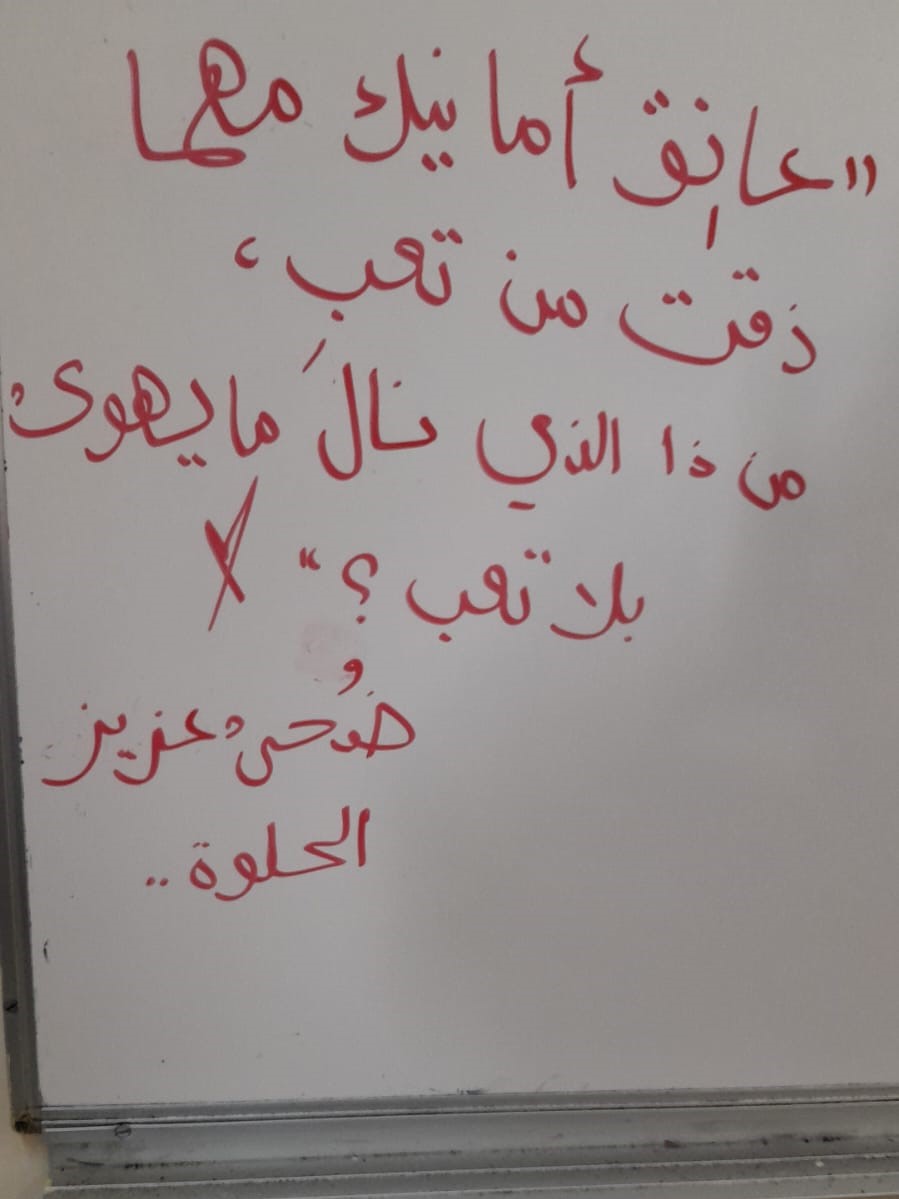 "عانِق أمانيك مهما
ذقت من تعبٍ،
من ذا الذي نالَ ما يهوىٰ
بلا تعب؟"
ضُحىٰ عزيز
الحلوة..